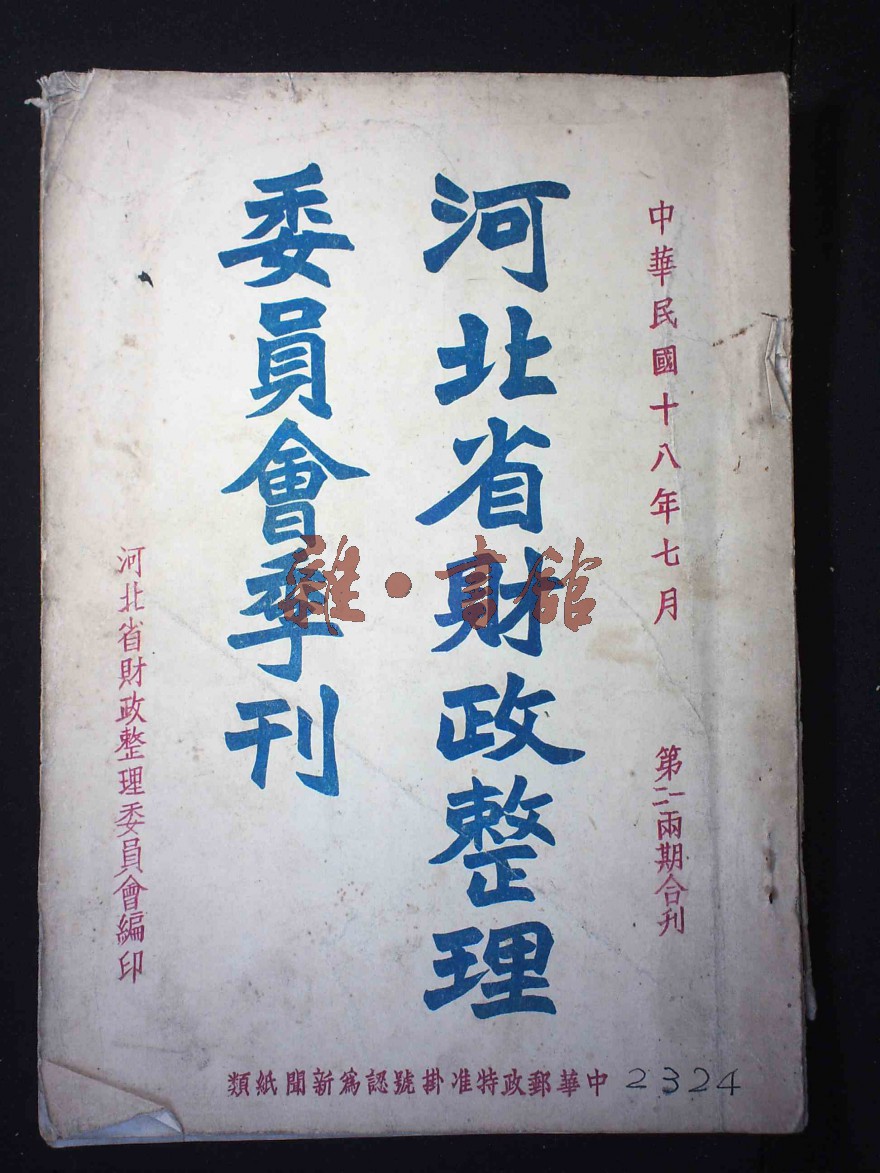 中華民國十八年七月
第一二兩期合刊
河北省財政整理
委員會季刊
河北省財政整理委員會編印
中華郵政特准掛號認為新聞紙類
2324
雜·書館